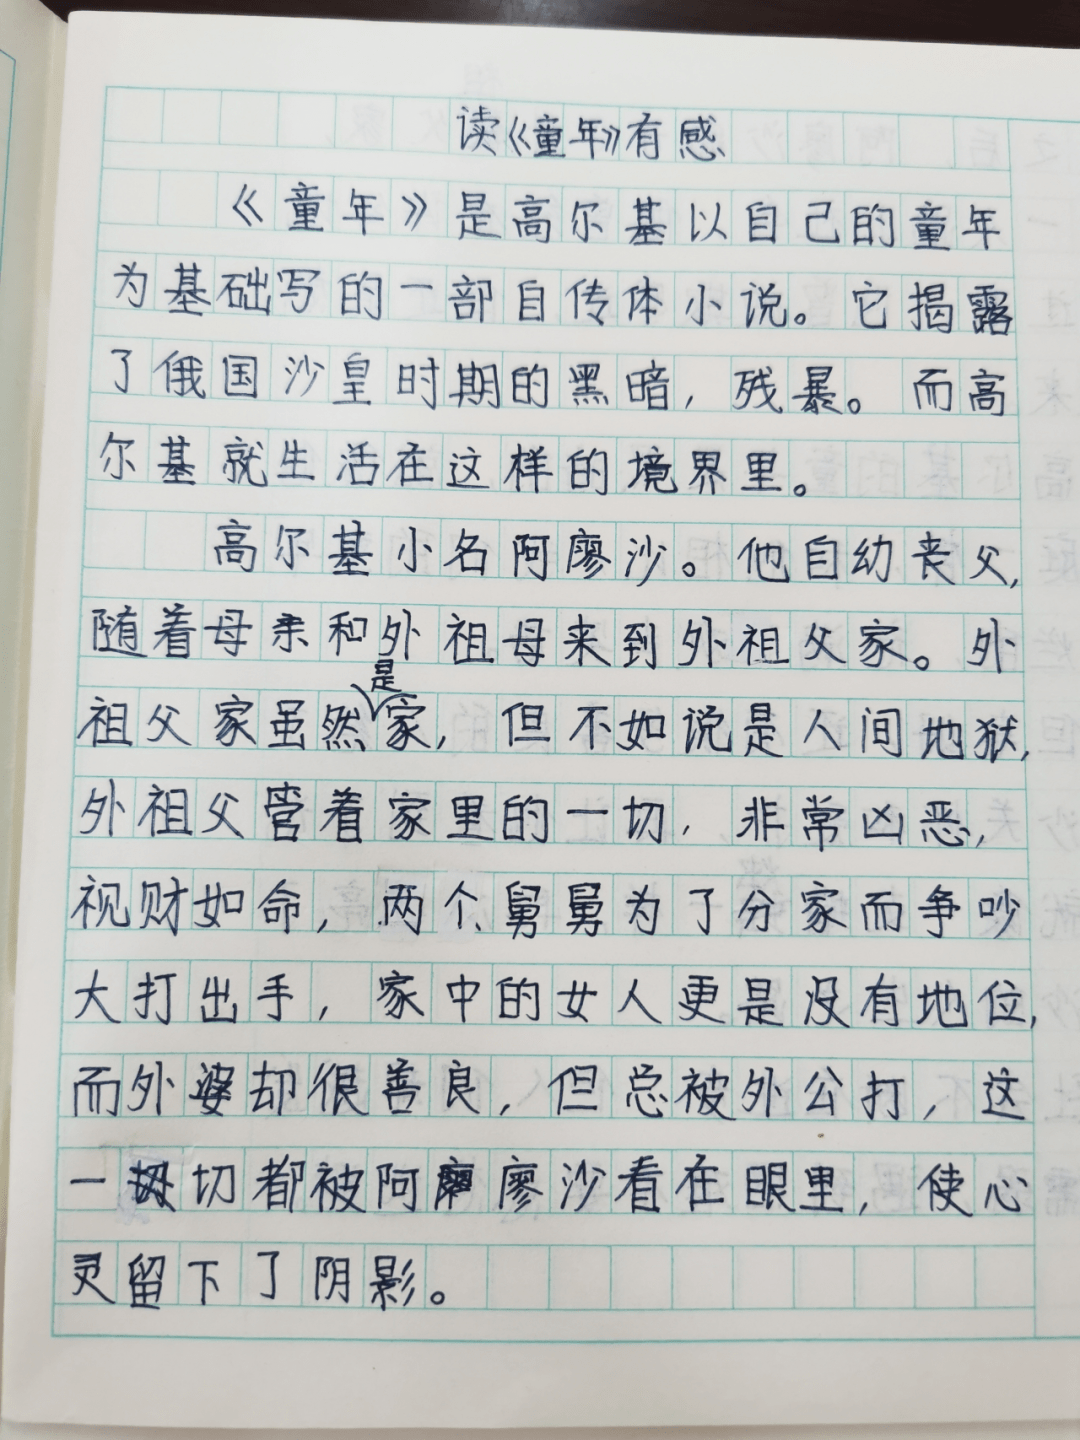 读《童年》有感
《童年》是高尔基以自己的童年
为基础写的一部自传体小说。它揭露
了俄国沙皇时期的黑暗，残暴。而高
尔基就生活在这样的境界里。
高尔基小名阿廖沙。他自幼丧父，
随着母亲和外祖母来到外祖父家。外
祖父家虽然是家，但不如说是人间地狱，
外祖父管着家里的一切，非常凶恶，
视财如命，两个舅舅为了分家而争吵
大打出手，家中的女人更是没有地位，
而外婆却很善良，但总被外公打，这
一切都被阿廖沙看在眼里，使心
灵留下了阴影。